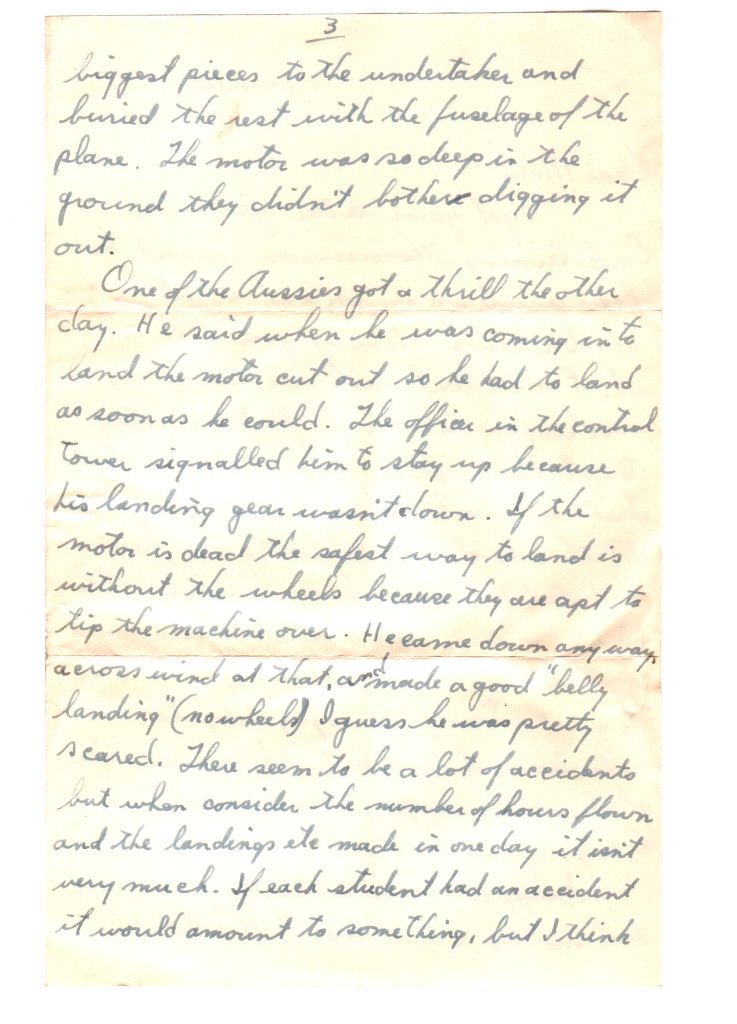 3
biggest pieces to the undertaker and
buried the rest with the fuselage of the
plane. The motor was so deep in the
ground they didn't bother digging it
out.
One of the Aussies got a thrill the other
day. He said when he was coming in to
land the motor cut out so he had to land
as soon as he could. The officer in the control
tower signalled him to stay up because
his landing gear wasn't down. If the
motor is dead the safest way to land is
without the wheels because they are apt to
tip the machine over. He came down any way,
across wind at that, and made a good "belly
landing" (no wheels) I guess he was pretty
scared. There seem to be a lot of accidents
but when consider the number of hours flown
and the landings etc made in one day it isn't
very much. If each student had an accident
it would amount to something, but I think